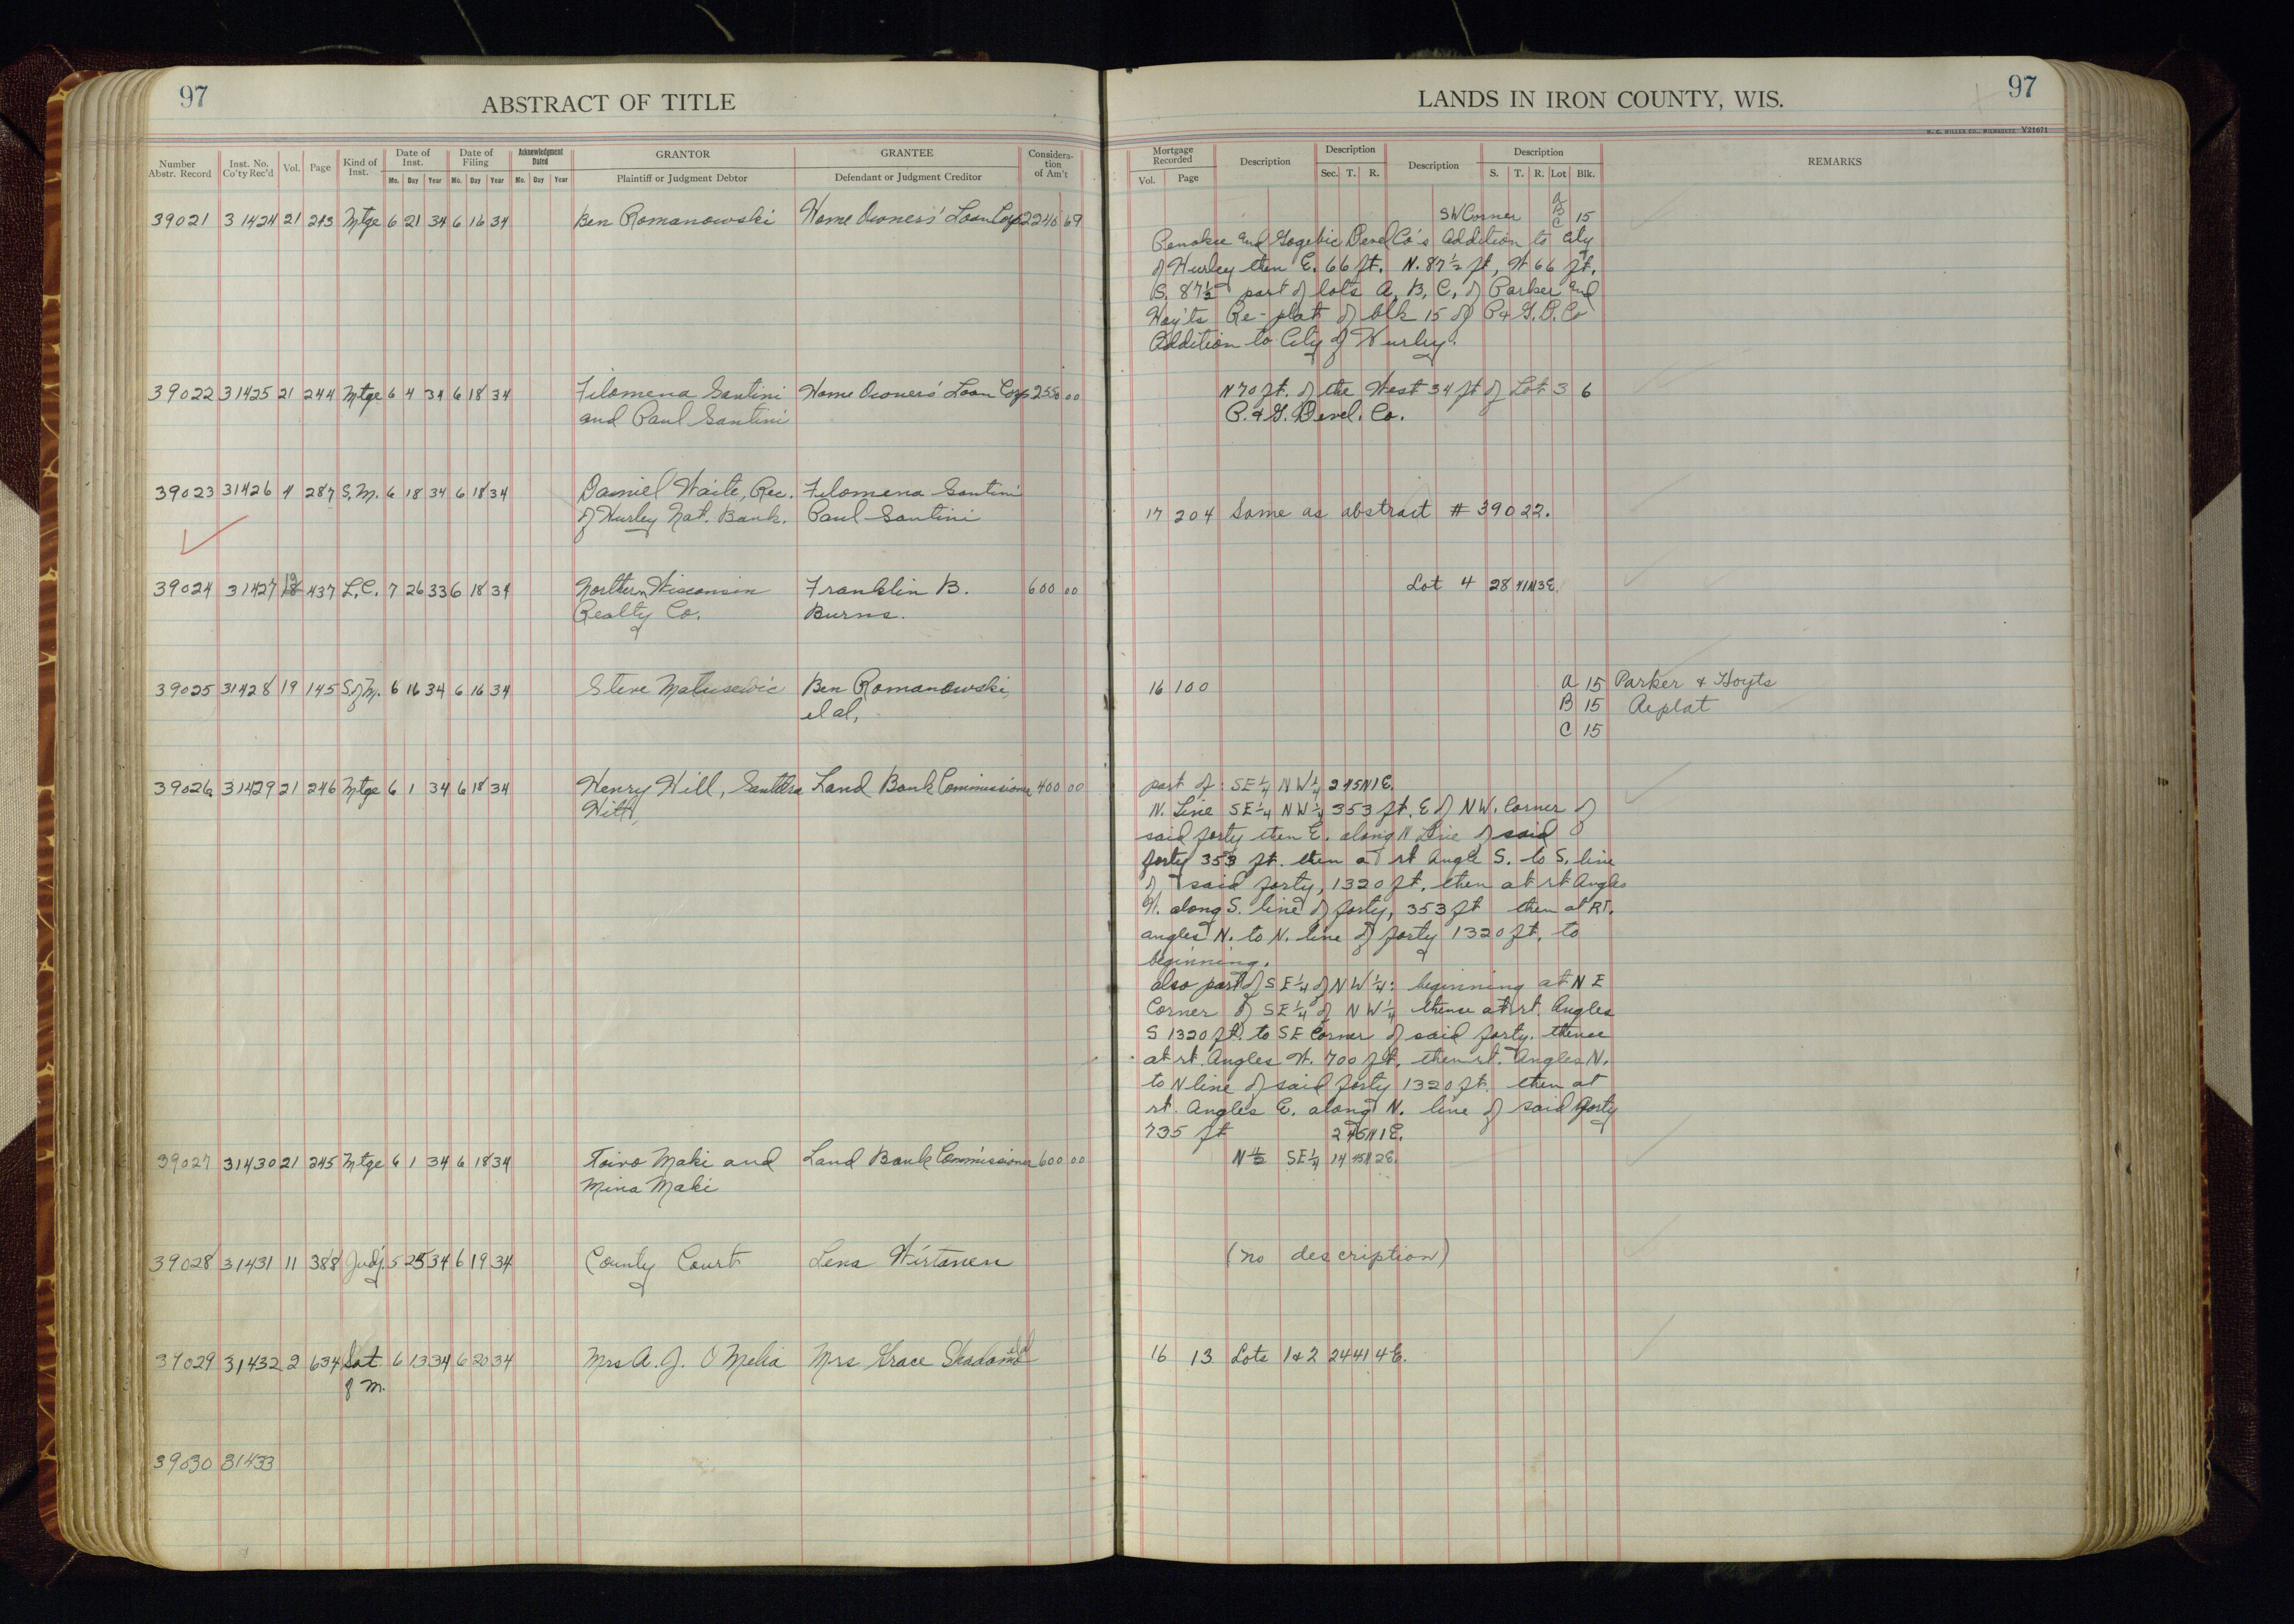 97
ABSTRACT OF TITLE
Number Abstr. Record
Inst. No. Co'ty Rec'd
Vol.
Page
Kind of Inst.
Date of Inst.
Mo. Day Year
Date of Filing
Mo. Day Year
Acknowledgment Dated
Mo. Day Year
GRANTOR
Plaintiff or Judgment Debtor
GRANTEE
Defendant or Judgment Creditor
Consideration of Am't
39021 31424 21 243 Mtge 6 21 34 6 16 34 Ben Romanowski Home Owners' Loan Corp 2240 69
39022 31425 21 244 Mtge 6 4 34 6 18 34 Filomena Santini Home Owners' Loan Corp 2550 00
and Paul Santini
39023 31426 4 287 S.M. 6 18 34 6 18 34 Daniel Waite, Rec. Filomena Santini
of Hurley Nat. Bank. Paul Santini
39024 31427 437 L.C. 7 26 33 6 18 34 Northern Wisconsin Franklin B. 600 00
Realty Co. Burns.
39025 31428 19 145 S of M. 6 16 34 6 16 34 Steve Matusewic Ben Romanowski,
et al,
39026 31429 21 246 Mtge 6 1 34 6 18 34 Henry Hill, Land Bank Commissioner 400 00
39027 31430 21 245 Mtge 6 1 34 6 18 34 Toivo Maki and Land Bank Commissioner 600 00
Mina Maki
39028 31431 11 388 Judj. 5 25 34 6 19 34 County Court Lena Wirtanen
39029 31432 2 634 Sat 6 13 34 6 20 34 Mrs A. J. O Melia Mrs Grace
of M.
39030 31433
LANDS IN IRON COUNTY, WIS.
97
H. C. MILLER CO., MILWAUKEE V21671
Mortgage Recorded
Vol. Page
Description
Description
Sec. T. R.
Description
Description
S. T. R. Lot Blk.
REMARKS
A
B
SW Corner C 15
Penokee and Gogebic Devel Co's Addition to City
of Hurley then E. 66 ft. N. 87 1/2 ft, W 66 ft.
S. 87 1/2 part of lots A, B, C, of Parker and
Hoy'ts Re-plat of blk 15 of P & G. D. Co
Addition to City of Hurley.
N 70 ft. of the West 34 ft of Lot 3 6
P. & G. Devel. Co.
17 204 Same as abstract # 39022.
Lot 4 28 41N 3E.
16 100 A 15 Parker & Hoyts
B 15 Replat
C 15
part of: SE 1/4 NW 1/4 2 45N 1E.
N. Line SE 1/4 NW 1/4 353 ft. E of NW. Corner of
said forty then E. along N Line of said
forty 353 ft. then at rt Angle S. to S. line
of said forty, 1320 ft, then at rt Angles
W. along S. line of forty, 353 ft then at RT.
angles N. to N. line of forty 1320 ft. to
beginning.
also part of SE 1/4 of NW 1/4: beginning at NE
Corner of SE 1/4 of NW 1/4 thence at rt. Angles
S 1320 ft. to SE Corner of said forty. thence
at rt. Angles W. 700 ft, then rt. Angles N.
to N line of said forty 1320 ft. then at
rt. Angles E. along N. line of said forty
735 ft 2 45N 1E.
N 1/2 SE 1/4 14 45N 2E.
(no description)
16 13 Lots 1 & 2 24 41 4E.